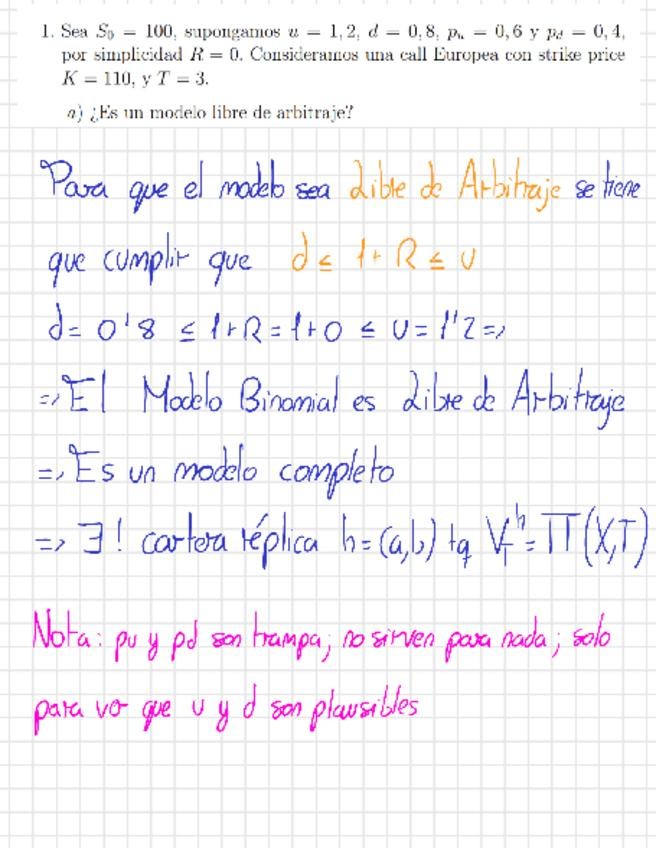 1. Sea S₀ = 100, supongamos u = 1,2, d = 0,8, pᵤ = 0,6 y p_d = 0,4,
por simplicidad R = 0. Consideramos una call Europea con strike price
K = 110, y T = 3.
a) ¿Es un modelo libre de arbitraje?
Para que el modelo sea Libre de Arbitraje se tiene
que cumplir que d ≤ 1+R ≤ u
d = 0'8 ≤ 1+R = 1+0 ≤ u = 1'2 =>
=> El Modelo Binomial es Libre de Arbitraje
=> Es un modelo completo
=> ∃! cartera réplica h=(a,b) tq V_T^h = Π(X,T)
Nota: pu y pd son trampa; no sirven para nada; solo
para ver que u y d son plausibles